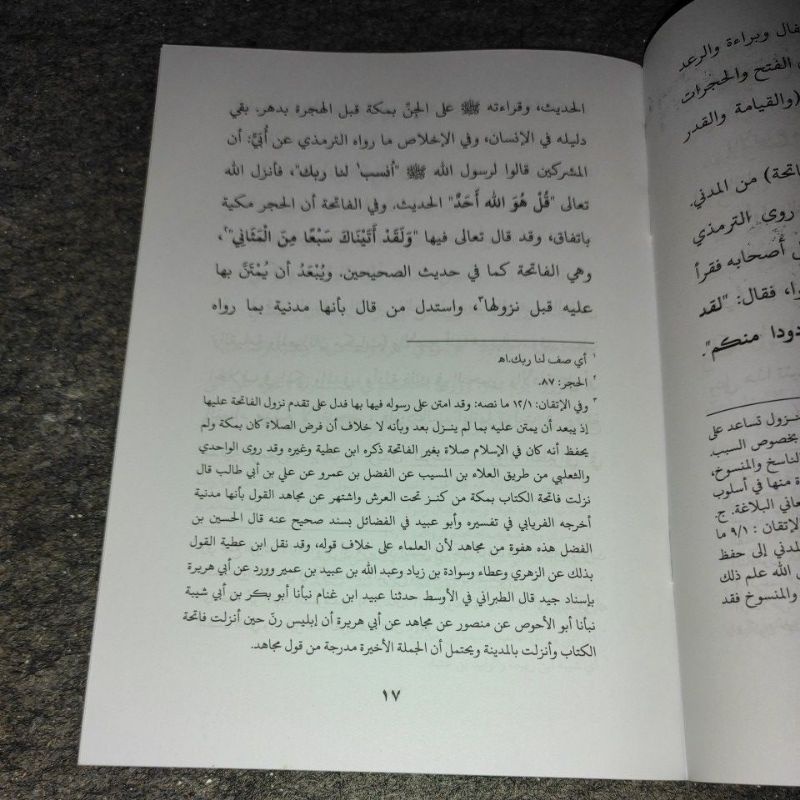 فال وبراءة والرعد
الفتح والحجرات
(والقيامة والقدر
فاتحة) من المدني.
روي الترمذي
أصحابه فقرأ
وا، فقال: "لقد
دودا منكم".
نزول تساعد على
بخصوص السبب.
الناسخ والمنسوخ،
ة منها في أسلوب
معاني البلاغة. ج.
الإتقان: ٩/١ ما
لمدني إلى حفظ
الله علم ذلك
والمنسوخ فقد
الحديث، وقراءته ﷺ على الجنّ بمكة قبل الهجرة بدهر. بقي
دليله في الإنسان، وفي الإخلاص ما رواه الترمذي عن أُبَيٍّ: أن
المشركين قالوا لرسول الله ﷺ "أنسب¹ لنا ربك"، فأنزل الله
تعالى "قُلْ هُوَ الله أَحَدٌ" الحديث. وفي الفاتحة أن الحجر مكية
باتفاق، وقد قال تعالى فيها "وَلَقَدْ أَتَيْنَاكَ سَبْعًا مِنَ الْمَثَانِي"²،
وهي الفاتحة كما في حديث الصحيحين. ويُبْعَدُ أن يُمْتَنَّ بها
عليه قبل نزولها³، واستدل من قال بأنها مدنية بما رواه
¹ أي صف لنا ربك.اهـ
² الحجر: ٨٧.
³ وفي الإتقان: ١٢/١ ما نصه: وقد امتن على رسوله فيها بها فدل على تقدم نزول الفاتحة عليها
إذ يبعد أن يمتن عليه بما لم ينزل بعد وبأنه لا خلاف أن فرض الصلاة كان بمكة ولم
يحفظ أنه كان في الإسلام صلاة بغير الفاتحة ذكره ابن عطية وغيره وقد روى الواحدي
والثعلبي من طريق العلاء بن المسيب عن الفضل بن عمرو عن علي بن أبي طالب قال
نزلت فاتحة الكتاب بمكة من كنز تحت العرش واشتهر عن مجاهد القول بأنها مدنية
أخرجه الفريابي في تفسيره وأبو عبيد في الفضائل بسند صحيح عنه قال الحسين بن
الفضل هذه هفوة من مجاهد لأن العلماء على خلاف قوله، وقد نقل ابن عطية القول
بذلك عن الزهري وعطاء وسوادة بن زياد وعبد الله بن عبيد بن عمير وورد عن أبي هريرة
بإسناد جيد قال الطبراني في الأوسط حدثنا عبيد ابن غنام نبأنا أبو بكر بن أبي شيبة
نبأنا أبو الأحوص عن منصور عن مجاهد عن أبي هريرة أن إبليس رنّ حين أنزلت فاتحة
الكتاب وأنزلت بالمدينة ويحتمل أن الجملة الأخيرة مدرجة من قول مجاهد.
١٧